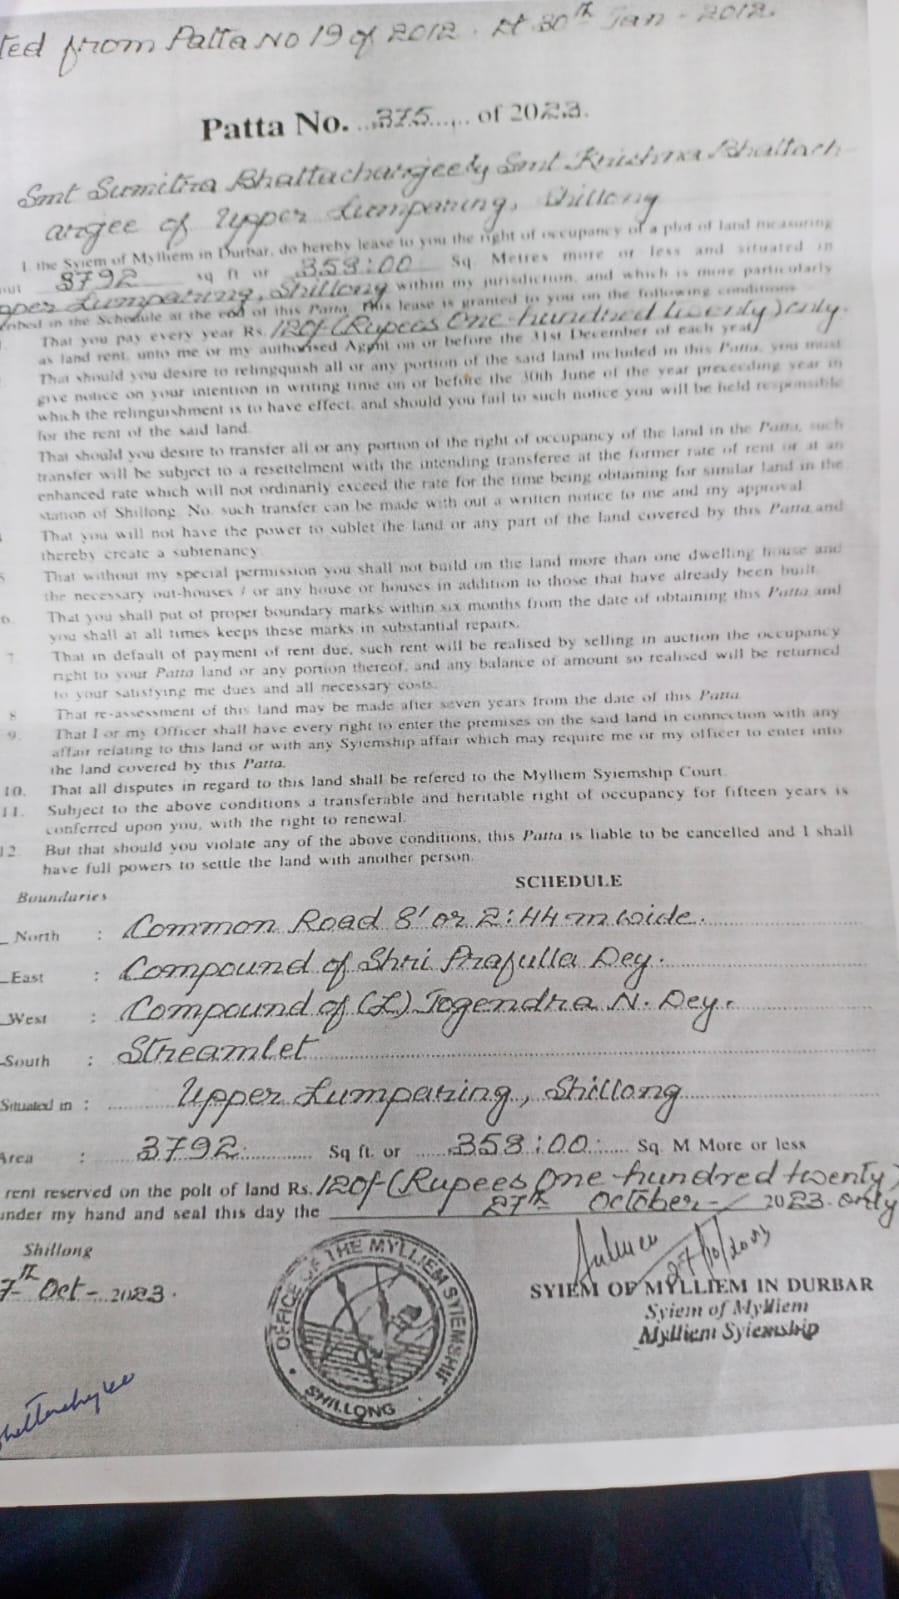 ted from Patta No 19 of 2012. Dt 30th Jan - 2012.
Patta No. 375 of 2023.
Smt Sumitra Bhattacharjee Smt Krishna Bhattach-
arjee of Upper Lumparing, Shillong
I, the Syiem of Mylliem in Durbar, do hereby lease to you the right of occupancy of a plot of land measuring
out 3792 sq ft or 353:00 Sq. Metres more or less and situated in
pper Lumparing, Shillong within my jurisdiction, and which is more particularly
ribed in the Schedule at the end of this Patta. This lease is granted to you on the following conditions
That you pay every year Rs. 120/- (Rupees One-hundred twenty) only.
as land rent, unto me or my authorised Agent on or before the 31st December of each year
That should you desire to relingquish all or any portion of the said land included in this Patta, you must
give notice on your intention in writing time on or before the 30th June of the year preceeding year in
which the relinguishment is to have effect, and should you fail to such notice you will be held responsible
for the rent of the said land.
That should you desire to transfer all or any portion of the right of occupancy of the land in the Patta, such
transfer will be subject to a resettelment with the intending transferee at the former rate of rent or at an
enhanced rate which will not ordinarily exceed the rate for the time being obtaining for similar land in the
station of Shillong. No. such transfer can be made with out a written notice to me and my approval
That you will not have the power to sublet the land or any part of the land covered by this Patta and
thereby create a subtenancy.
5 That without my special permission you shall not build on the land more than one dwelling house and
the necessary out-houses / or any house or houses in addition to those that have already been built.
6. That you shall put of proper boundary marks within six months from the date of obtaining this Patta and
you shall at all times keeps these marks in substantial repairs.
7 That in default of payment of rent due, such rent will be realised by selling in auction the occupancy
right to your Patta land or any portion thereof, and any balance of amount so realised will be returned
to your satisfying me dues and all necessary costs.
8 That re-assessment of this land may be made after seven years from the date of this Patta
9. That I or my Officer shall have every right to enter the premises on the said land in connection with any
affair relating to this land or with any Syiemship affair which may require me or my officer to enter into
the land covered by this Patta.
10. That all disputes in regard to this land shall be refered to the Mylliem Syiemship Court.
11. Subject to the above conditions a transferable and heritable right of occupancy for fifteen years is
conferred upon you, with the right to renewal.
12 But that should you violate any of the above conditions, this Patta is liable to be cancelled and I shall
have full powers to settle the land with another person.
SCHEDULE
Boundaries
North : Common Road 8' or 2:44 m wide.
East : Compound of Shri Prafulla Dey.
West : Compound of (L) Jogendra N. Dey.
South : Streamlet
Situated in : Upper Lumparing, Shillong
Area : 3792 Sq ft. or 353:00 Sq. M More or less
rent reserved on the polt of land Rs. 120/- (Rupees One-hundred twenty)
nder my hand and seal this day the 27th October - 2023. only
Shillong
7th Oct - 2023.
27/10/2023
SYIEM OF MYLLIEM IN DURBAR
Syiem of Mylliem
Mylliem Syiemship
OFFICE OF THE MYLLIEM SYIEMSHIP
SHILLONG